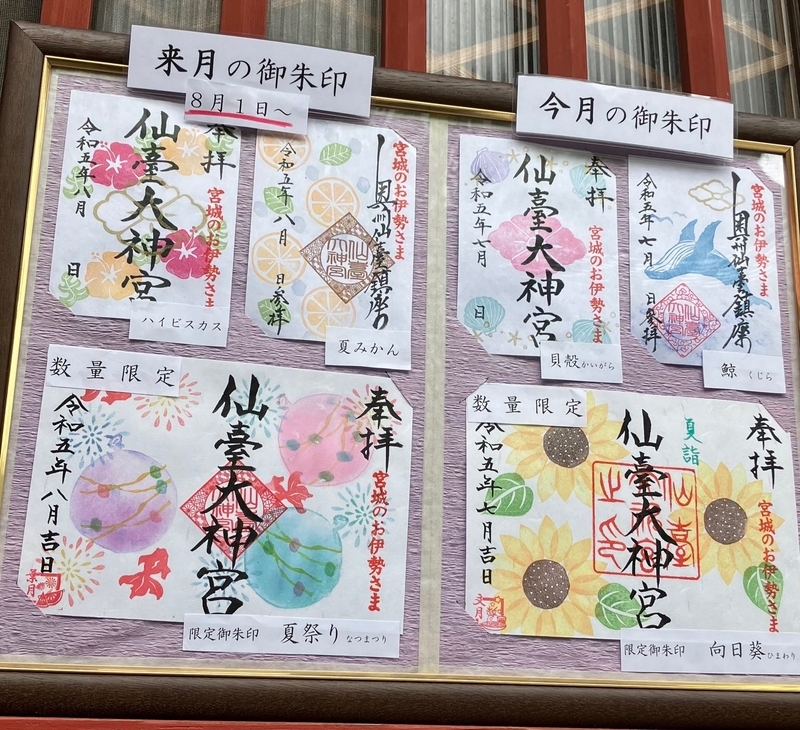 来月の御朱印
8月1日〜
奉拝
宮城のお伊勢さま
仙臺大神宮
令和五年八月　日
ハイビスカス
宮城のお伊勢さま
奥州仙臺鎮座
仙臺大神宮
令和五年八月　日参拝
夏みかん
数量限定
奉拝
宮城のお伊勢さま
仙臺大神宮
令和五年八月吉日
葉月
限定御朱印　夏祭りなつまつり
今月の御朱印
奉拝
宮城のお伊勢さま
仙臺大神宮
令和五年七月　日
貝殻かいがら
宮城のお伊勢さま
奥州仙臺鎮座
仙臺大神宮
令和五年七月　日参拝
鯨くじら
数量限定
奉拝
夏詣
宮城のお伊勢さま
仙臺大神宮
令和五年七月吉日
文月
限定御朱印　向日葵ひまわり